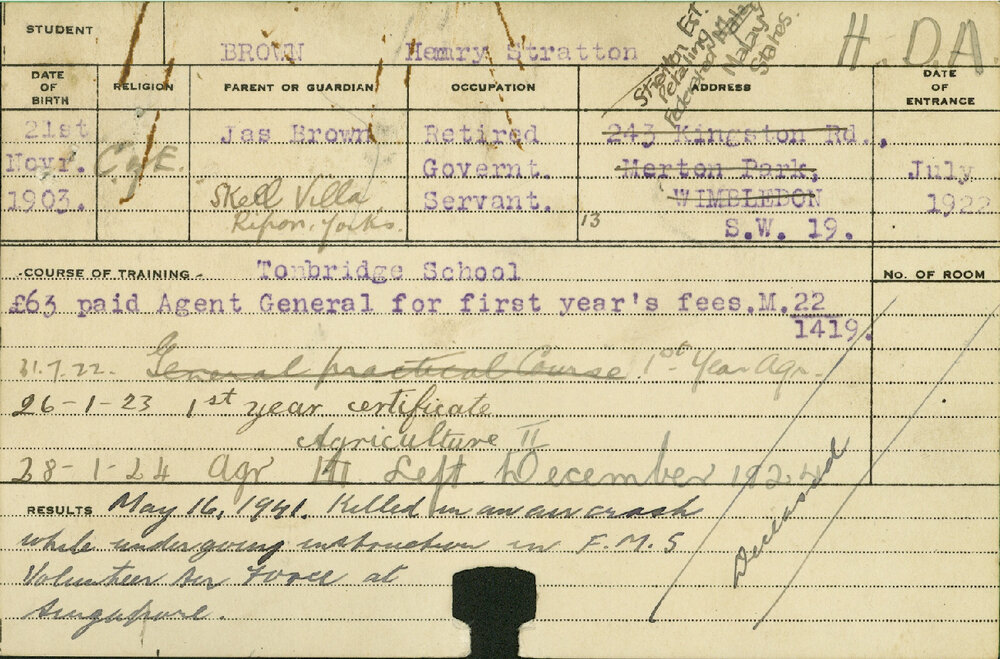 STUDENT
BROWN Henry Stratton
H. D. A.
DATE OF BIRTH
RELIGION
PARENT OR GUARDIAN
OCCUPATION
ADDRESS
DATE OF ENTRANCE
Federated Malay
Malay
States.
21st
Novr.
1903.
C of E.
Jas Brown
Skell Villa
Ripon. Yorks.
Retired
Governt.
Servant.
243 Kingston Rd.,
Merton Park,
WIMBLEDON
S.W. 19.
13
July
1922
COURSE OF TRAINING Tonbridge School
No. OF ROOM
£63 paid Agent General for first year's fees.M.22
1419.
31.7.22. General practical Course. 1st Year Agr.
26-1-23 1st year certificate
Agriculture II
28-1-24 Agr III Left December 1924
RESULTS May 16, 1941. Killed in an air crash
while undergoing instruction in F.M.S
Volunteer Air Force at
Singapore.
Deceased